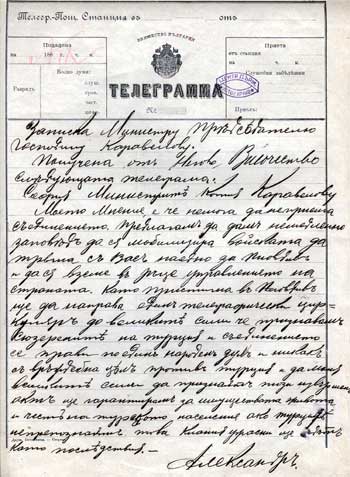 Телегр.-Пощ. Станция въ отъ
КНЯЖЕСТВО БЪЛГАРИЯ
Подадена
188 г. ч. м.
Приета
отъ станция
на ч. м.
Разредъ
Колко думи:
Служебни забѣлѣжки
ТЕЛЕГРАММА
№
Приелъ:
Записка Министру Прѣдсѣдателю
Господину Каравелову.
Получена отъ Негово Височество
слѣдующата телеграма.
София Министрътъ Каравелову
Моето Мнение е че немога да неприема
съединението. Прѣдлагамъ да дамъ немѣдленно
заповѣдь да се мобилизира войската да
тръгна съ Васъ наедно да Пловдивъ
и да се вземе въ рѫце управлението на
страната. Като пристигна въ Пловдивъ
ще да направа единъ телеграфически цир-
куляръ до великитѣ сили че признавамъ
Сюзеренитѣ на Турция и съединението
се прави по единъ народенъ духъ и никакъ
съ враждебна цѣль противъ турция и да моля
великитѣ сили да признаятъ този
актъ ще гарантирамъ да имуществото живота
и честьта на турското население ако турция
непрепознаятъ това клания ще бѫдѫтъ
като послѣдствия.
Александръ.